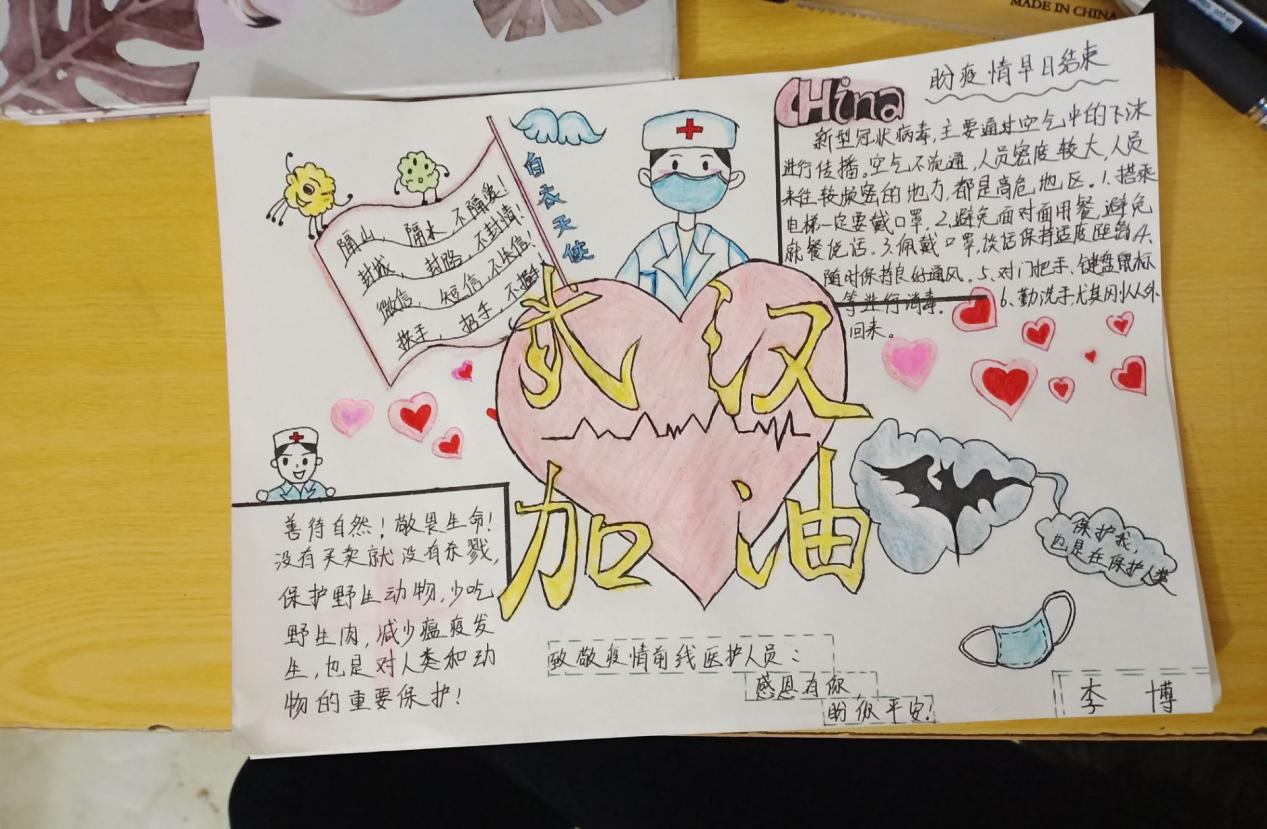 MADE IN CHINA
盼疫情早日结束
CHina
新型冠状病毒,主要通过空气中的飞沫
进行传播。空气不流通,人员密度较大,人员
来往较频密的地方,都是高危地区。1.搭乘
电梯一定要戴口罩。2.避免面对面用餐,避免
就餐说话。3.佩戴口罩,谈话保持适度距离4、
随时保持良好通风。5、对门把手、键盘鼠标
等进行消毒.
6、勤洗手尤其刚从外
回来。
白衣天使
隔山、隔水、不隔爱!
封城、封路、不封情!
微信、短信、不失信!
换手、招手、不
武汉
加油
善待自然!敬畏生命!
没有买卖就没有杀戮,
保护野生动物,少吃
野生肉,减少瘟疫发
生,也是对人类和动
物的重要保护!
保护我,
也是在保护人类
致敬疫情前线医护人员:
感恩有你
盼你平安!
李 博